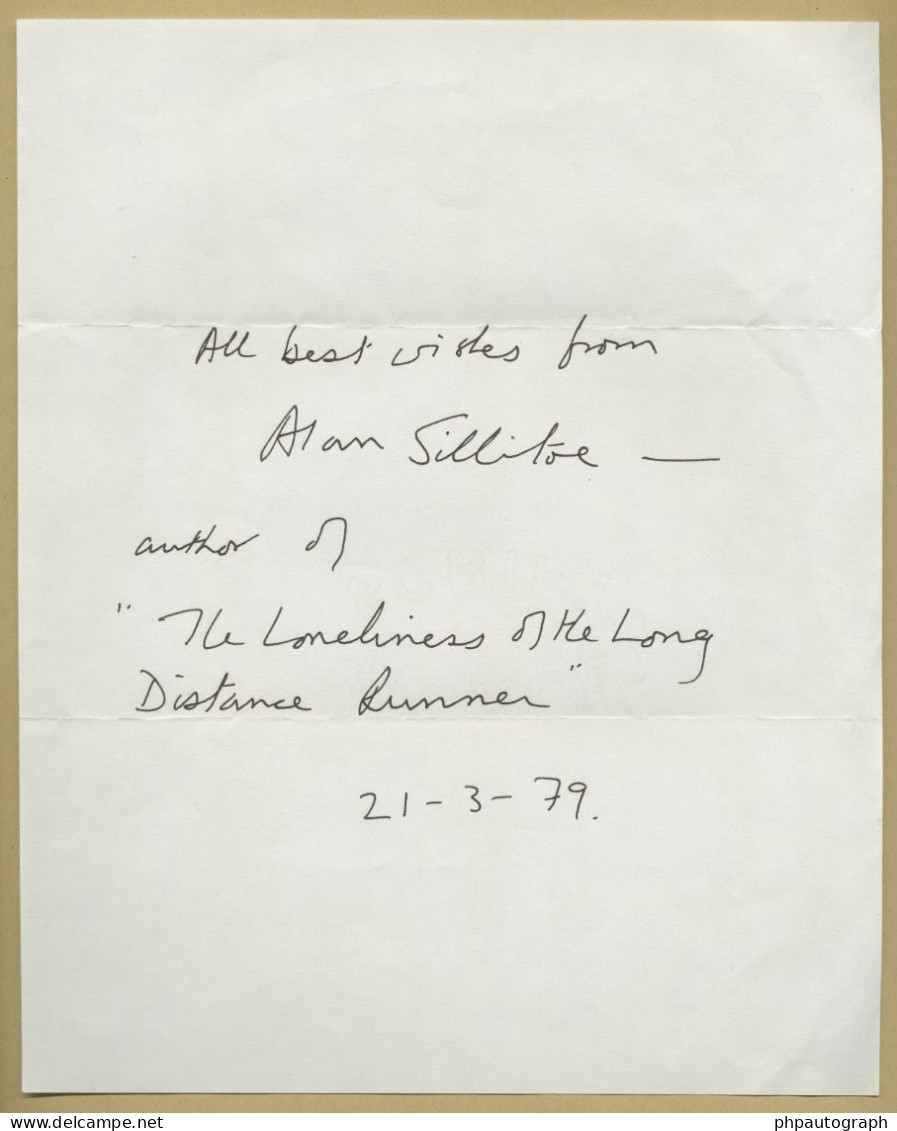 All best wishes from
Alan Sillitoe —
author of
"The Loneliness of the Long
Distance Runner"
21-3-79.
delcampe.net
phpautograph